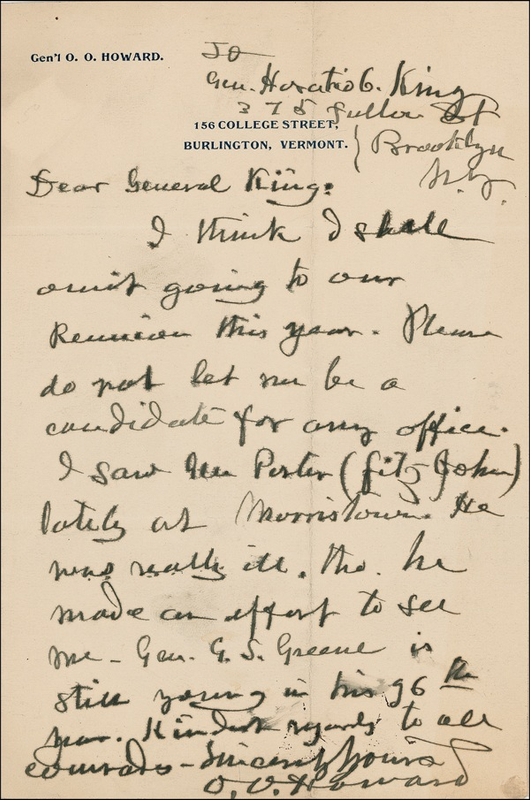 Gen'l O. O. HOWARD.
To
Gen. Horatio C. King
375 Fulton St
156 COLLEGE STREET,
BURLINGTON, VERMONT.
Brooklyn
N.Y.
Dear General King:
I think I shall
omit going to our
Reunion this year. Please
do not let me be a
candidate for any office.
I saw Porter (Fitz John)
lately at Morristown. He
was really ill, tho. he
made an effort to see
me - Gen. G. S. Greene is
still young in his 96th
year. Kindest regards to all
comrades - Sincerely Yours
O. O. Howard